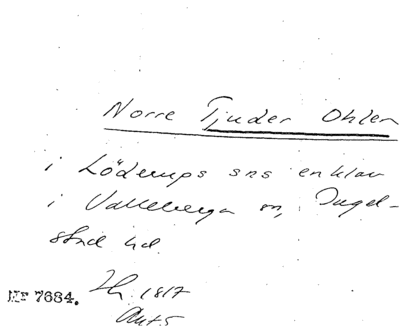 Norre Tjuder Ohlen
i Löderups sns enklav
i Valleberga sn, Ingel-
stad hd.
Nr 7684. 1817
Akt 5